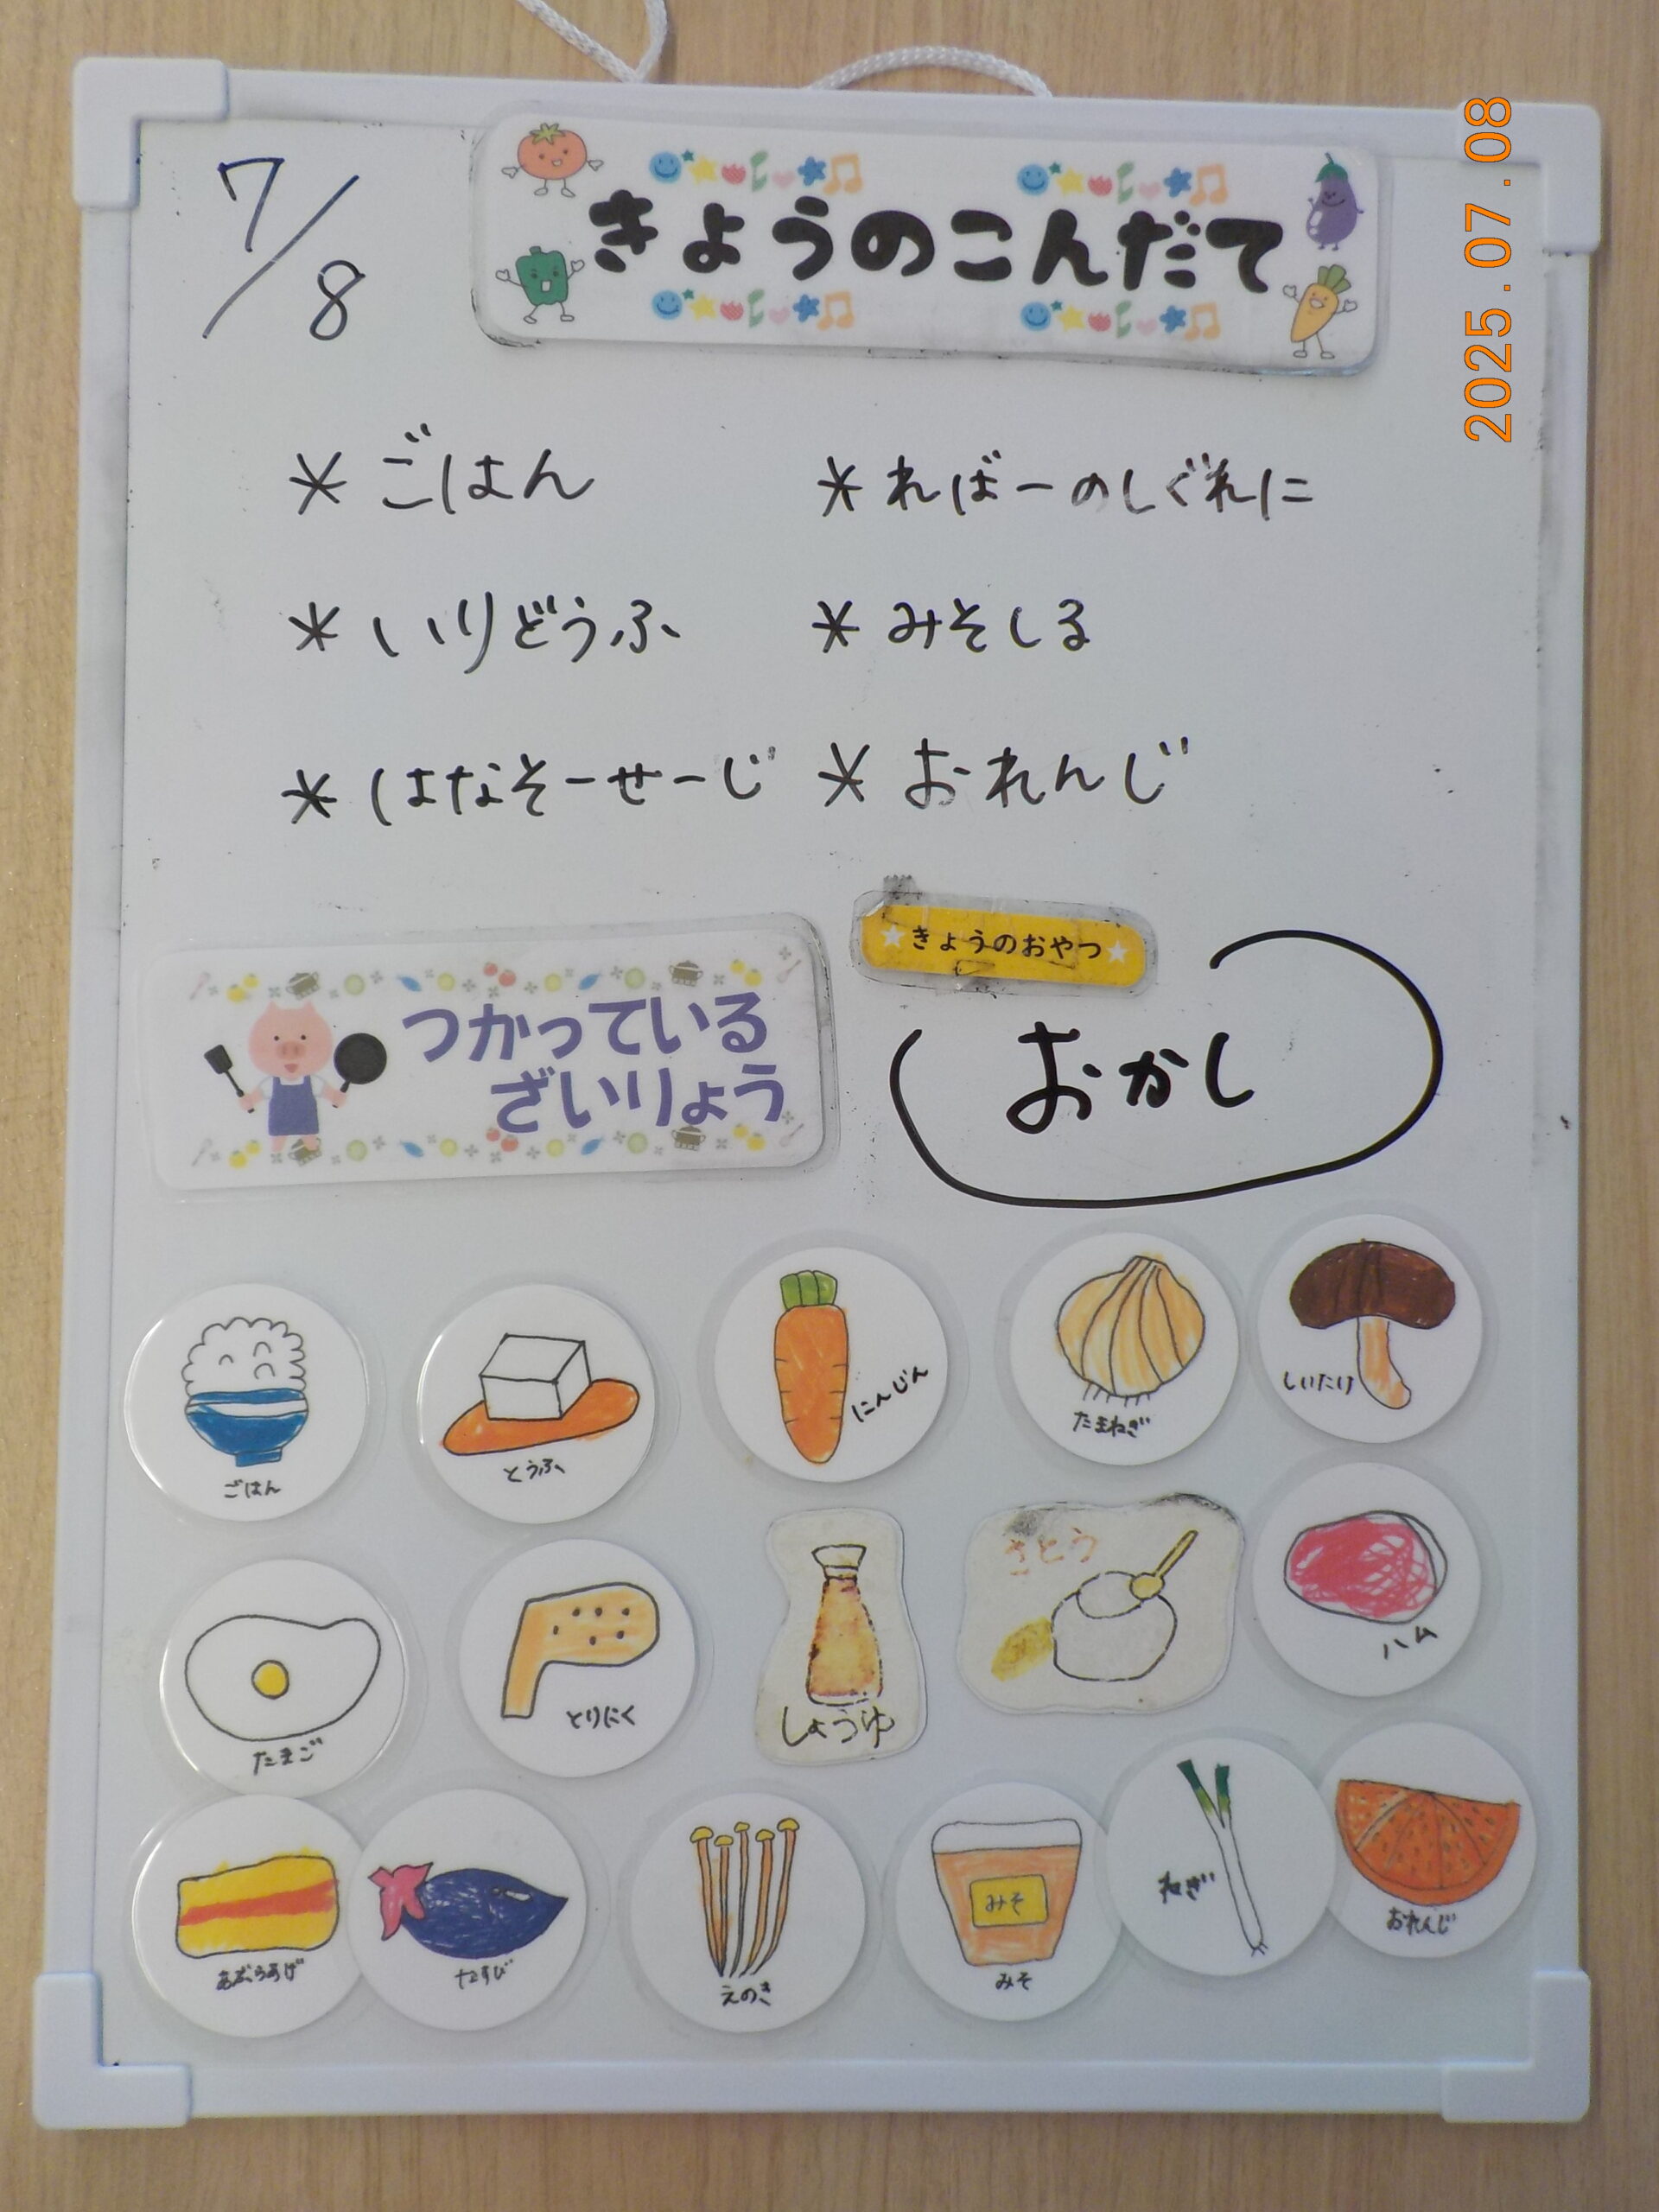 7/8
きょうのこんだて
2025.07.08
* ごはん
* ればーのしぐれに
* いりどうふ
* みそしる
* はなそーせーじ
* おれんじ
きょうのおやつ
おかし
つかっている
ざいりょう
ごはん
とうふ
にんじん
たまねぎ
しいたけ
たまご
とりにく
しょうゆ
さとう
ハム
あぶらあげ
なすび
えのき
みそ
みそ
ねぎ
おれんじ